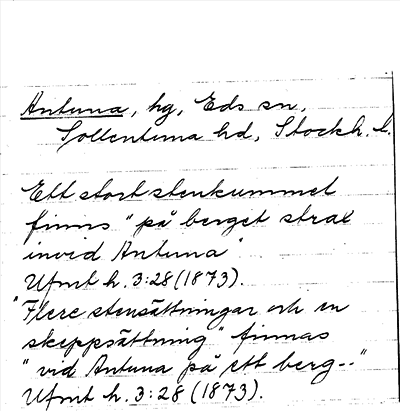 Antuna, hg, Eds sn,
Sollentuna hd, Stockh. l.
Ett stort stenkummel
finns "på berget strax
invid Antuna".
Ufmt h. 3:28 (1873).
"Flere stensättningar och en
skeppsättning" finnas
"vid Antuna på ett berg--"
Ufmt h. 3:28 (1873).